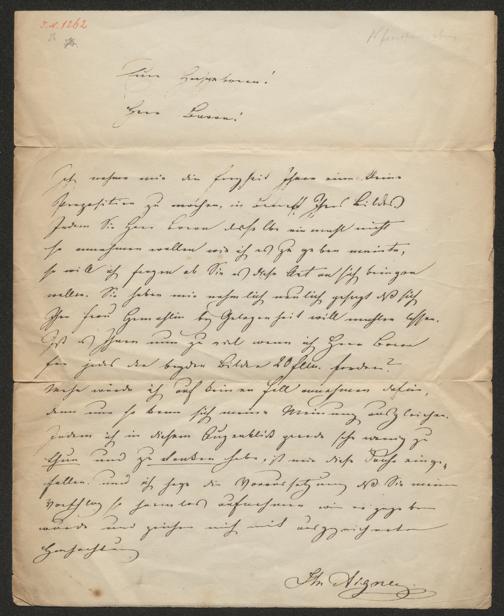 I.N. 1262
Euer Hochgeboren!
Herr Baron!
Ich nehme mir die Freyheit Ihnen eine kleine
Proposition zu machen, in Betreff Ihres Bildes
Indem Sie Herr Baron dasselbe einmahl nicht
so annehmen wollen wie ich es zu geben meinte,
so will ich fragen ob Sie es diese Art an sich bringen
wollen. Sie haben mir nehmlich neulich gesagt daß sich
Ihre Frau Gemahlin bey Gelegenheit will mahlen lassen.
Ist es Ihnen nun zu viel wenn ich Herr Baron
für jedes der beyden Bilder 20 fl. fordere?
Mehr würde ich auf keinen Fall annehmen dafür,
denn nur so kann sich meine Meinung ausgleichen.
Indem ich in diesem Augenblick gerade sehr wenig zu
thun und zu denken habe, ist mir diese Sache einge-
fallen und ich hege die Voraussetzung daß Sie meinen
Vorschlag so harmlos aufnehmen wie er gegeben
wurde und zeichne mich mit ausgezeichneter
Hochachtung
Aigner